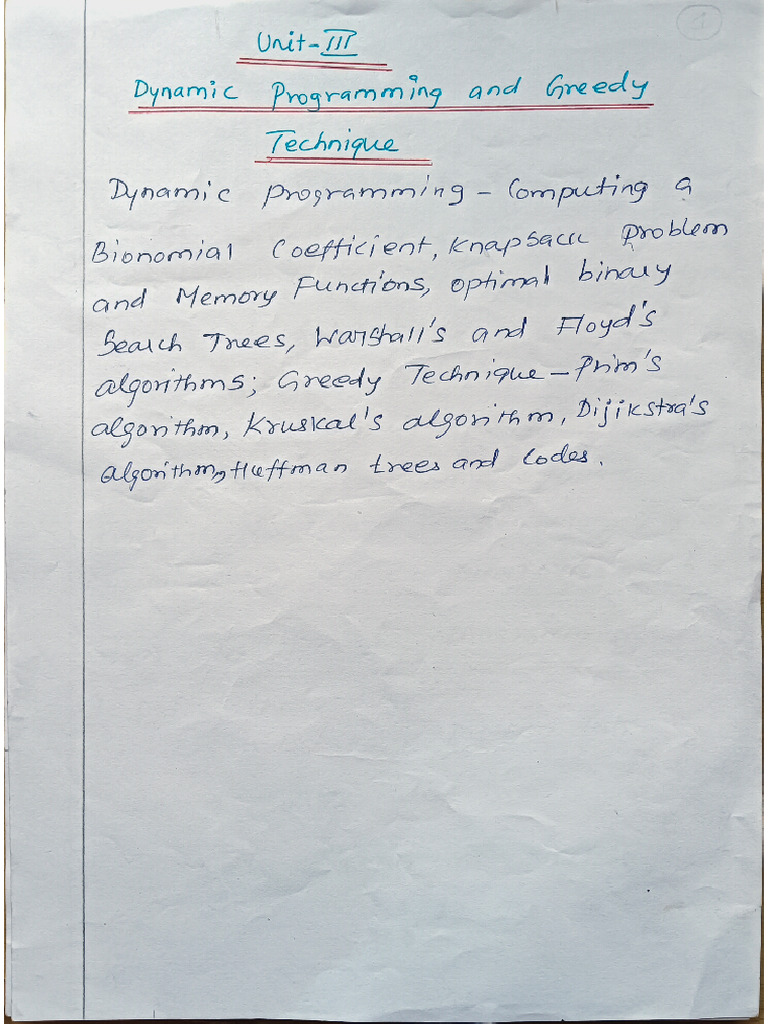 1
Unit-III
Dynamic Programming and Greedy
Technique
Dynamic programming - Computing a
Bionomial Coefficient, Knapsack Problem
and Memory Functions, optimal binary
Search Trees, Warshall's and Floyd's
algorithms; Greedy Technique - Prim's
algorithm, Kruskal's algorithm, Dijikstra's
algorithm, Huffman trees and Codes.